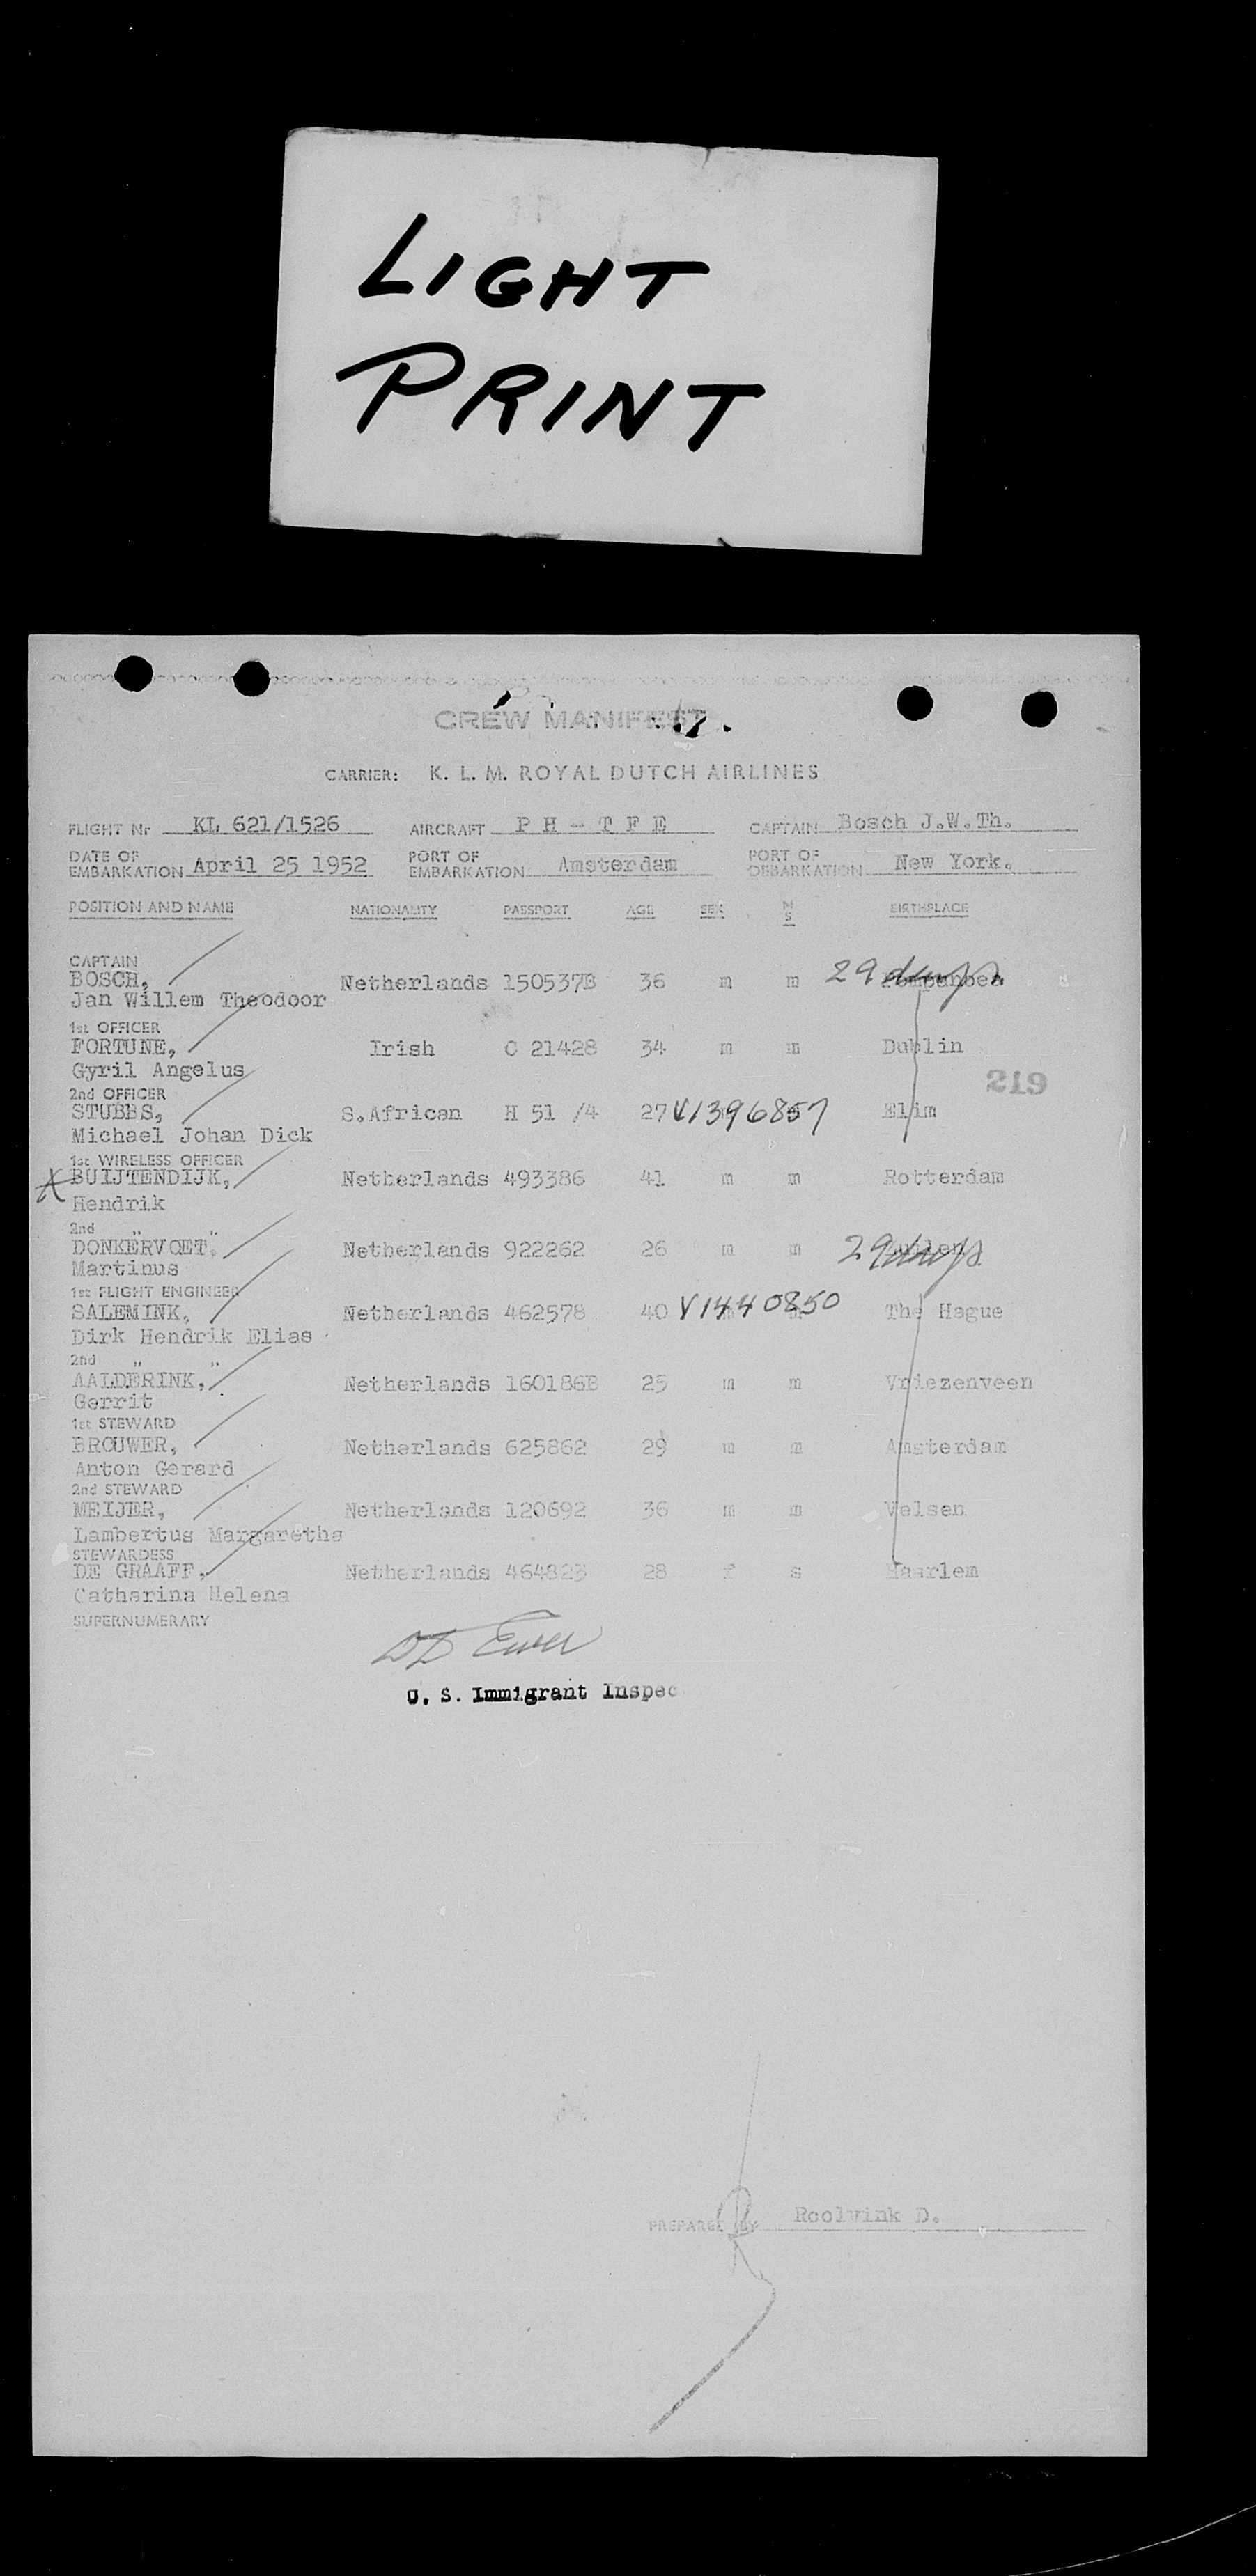 LIGHT
PRINT
CREW MANIFEST
CARRIER: K. L. M. ROYAL DUTCH AIRLINES
FLIGHT Nr KL 621/1526 AIRCRAFT P H - T F E CAPTAIN Bosch J.W.Th.
DATE OF EMBARKATION April 25 1952 PORT OF EMBARKATION Amsterdam PORT OF DEBARKATION New York.
POSITION AND NAME NATIONALITY PASSPORT AGE SEX M S BIRTHPLACE
CAPTAIN
BOSCH, Netherlands 150537B 36 m m 29 days
Jan Willem Theodoor
1st OFFICER
FORTUNE, Irish C 21428 34 m m Dublin
Gyril Angelus
219
2nd OFFICER
STUBBS, S.African H 51 /4 27 V1396857 Elim
Michael Johan Dick
1st WIRELESS OFFICER
X BUIJTENDIJK, Netherlands 493386 41 m m Rotterdam
Hendrik
2nd " "
DONKERVOET, Netherlands 922262 26 m m 29 days
Martinus
1st FLIGHT ENGINEER
SALEMINK, Netherlands 462578 40 V1440850 The Hague
Dirk Hendrik Elias
2nd " "
AALDERINK, Netherlands 160186B 25 m m Vriezenveen
Gerrit
1st STEWARD
BROUWER, Netherlands 625862 29 m m Amsterdam
Anton Gerard
2nd STEWARD
MEIJER, Netherlands 120692 36 m m Velsen
Lambertus Margaretha
STEWARDESS
DE GRAAFF, Netherlands 464823 28 f s Haarlem
Catharina Helena
SUPERNUMERARY
U. S. Immigrant Inspec
PREPARED BY Roolvink D.